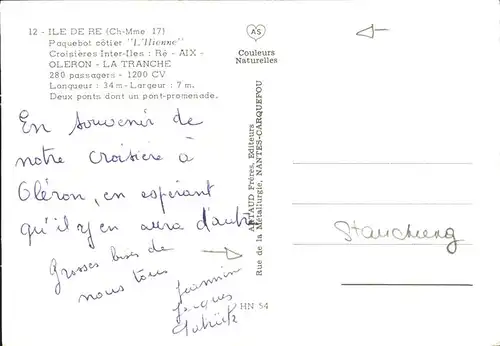 12 - ILE DE RE (Ch-Mme 17)
Paquebot côtier "L'Hienne"
Croisières Inter-Iles : Ré - AIX -
OLERON - LA TRANCHE
280 passagers - 1200 CV
Longueur : 34 m - Largeur : 7 m.
Deux ponts dont un pont-promenade.
En souvenir de
notre croisière à
Oléron, en espérant
qu'il y en aura d'autres
Grosses bises de
nous tous
Jeannine
Jacques
Patrick
AS
Couleurs
Naturelles
ARTAUD Frères, Editeurs
Rue de la Métallurgie, NANTES-CARQUEFOU
HN 54